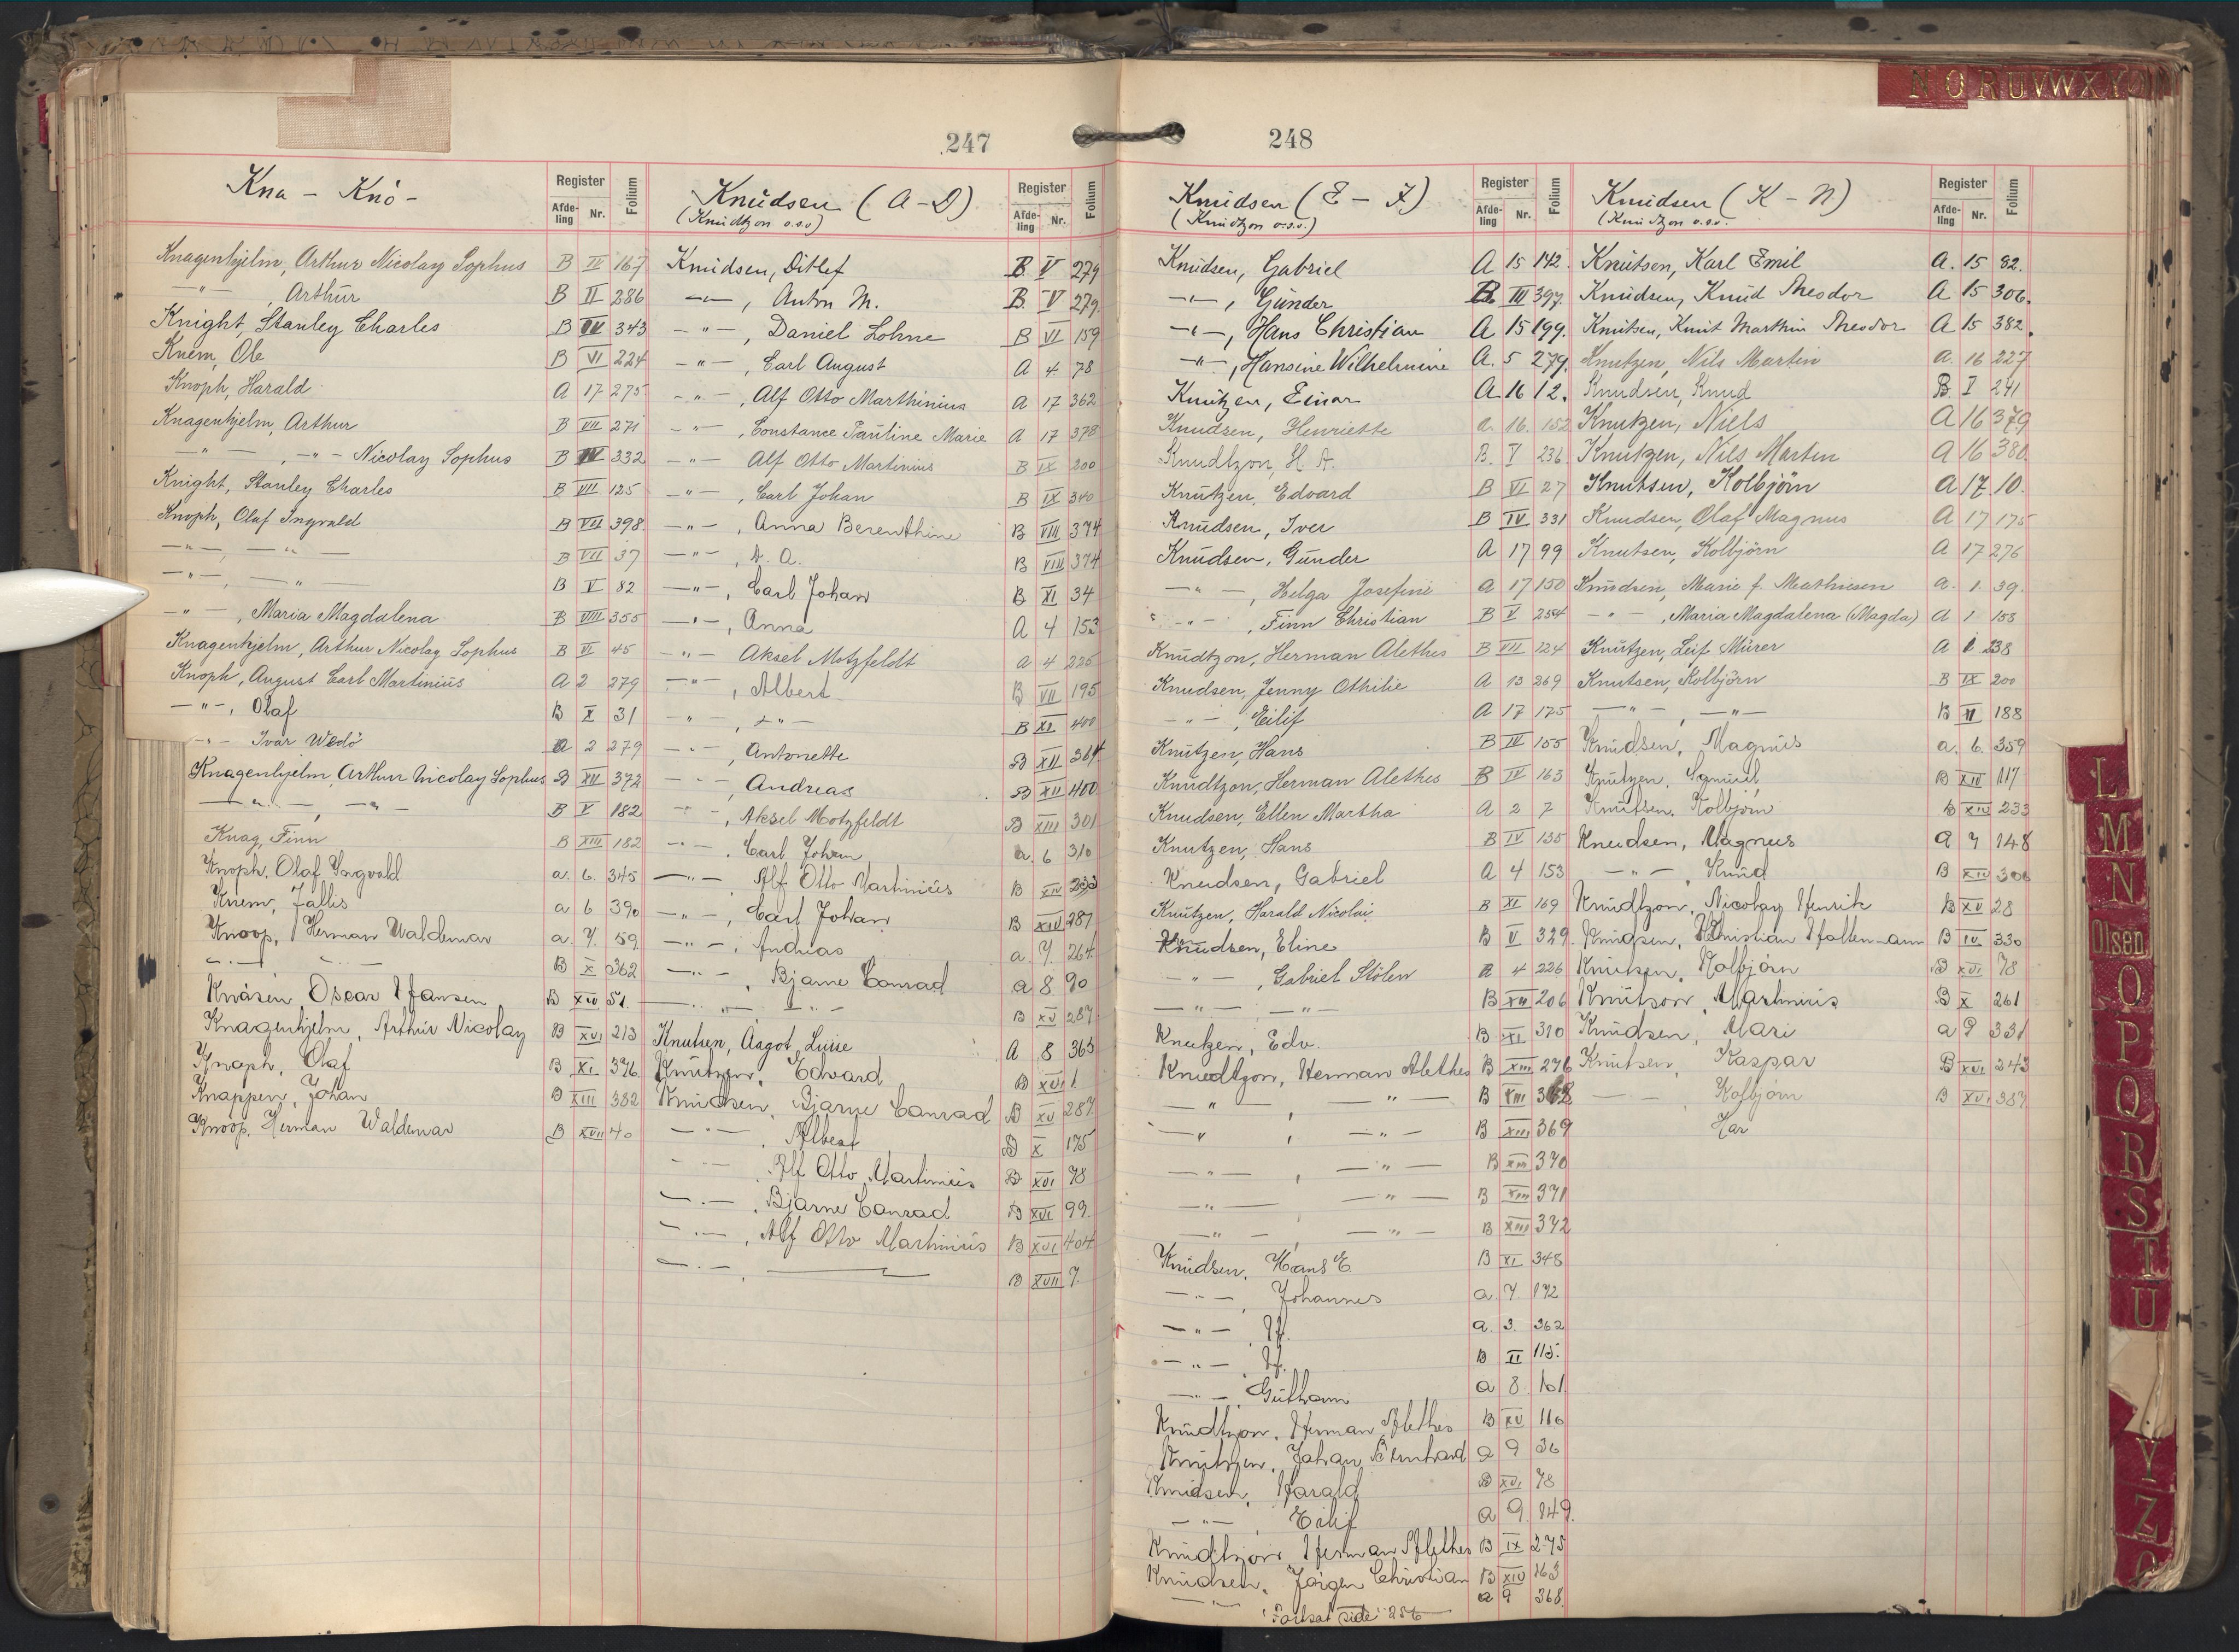 247
Kna - Knö -
Register
Afde-
ling
Nr.
Folium
Knagenhjelm, Arthur Nicolay Sophus B IV 167
-"- , Arthur B II 286
Knight, Stanley Charles B IV 343
Knem, Ole B VI 224
Knoph, Harald A 17 275
Knagenhjelm, Arthur B VII 271
-"- , -"- Nicolay Sophus B IV 332
Knight, Stanley Charles B VII 125
Knoph, Olaf Ingvald B VII 398
-"-, -"- B VII 37
-"-, -"- B V 82
-"-, Maria Magdalena B VIII 355
Knagenhjelm, Arthur Nicolay Sophus B VI 45
Knoph, August Carl Martinius A 2 279
-"-, Olaf B X 31
-"- Ivar Wedö A 2 279
Knagenhjelm, Arthur Nicolay Sophus B XII 372
-"-, -"- B V 182
Knag, Finn B XIII 182
Knoph, Olaf Ingvald a. 6. 345
Knem, Jallis a 6 390
Knoop, Herman Waldemar a. 7. 59
-"- -"- B X 362
Knåsen Oscar Hansen B XIV 51
Knagenhjelm, Arthur Nicolay B XVI 213
Knoph, Olaf B XI 376
Knappen, Johan B XIII 382
Knoop, Herman Waldemar B XVII 40
Knudsen (A - D)
(Knudtzon o.s.v)
Register
Afde-
ling
Nr.
Folium
Knudsen, Ditlef B V 279
-"-, Anton M. B V 279
-"-, Daniel Lohne B VI 159
-"-, Carl August A 4 78
-"-, Alf Otto Marthinius A 17 362
-"-, Constance Pauline Marie A 17 378
-"- Alf Otto Martinius B IX 200
-"-, Carl Johan B IX 340
-"-, Anna Berenthine B VIII 374
-"-, A. A. B VIII 374
-"-, Carl Johan B XI 34
-"-, Anna A 4 153
-"- Aksel Motzfeldt a 4 225
-"-, Albert B VII 195
-"-, -"- B XI 400
-"-, Antonette B XII 364
-"-, Andreas B XII 400
-"-, Aksel Motzfeldt B XIII 301
-"-, Carl Johan a. 6 310
-"-, Alf Otto Martinius B XIV 233
-"-, Carl Johan B XIV 287
-"-, Andreas a. 7. 264
-"-, Bjarne Conrad a 8 90
-"-, -"- B XV 287
Knutsen, Aagot Luise A 8 365
Knutzen, Edvard B XVI 1
Knudsen, Bjarne Conrad B XV 287
-"-, Albert B X 175
-"-, Alf Otto Martinius B XVI 78
-"-, Bjarne Conrad B XVI 99.
-"-, Alf Otto Martinius B XVI 404
-"-, B XVII 7.
248
Knudsen (E - J)
(Knudtzon o.s.v.)
Register
Afde-
ling
Nr.
Folium
Knudsen, Gabriel A 15 142.
-"-, Gunder B. III 397.
-"-, Hans Christian A 15 199.
-"-, Hansine Wilhelmine A. 5 279.
Knutzen, Einar A 16 12.
Knudsen, Henriette a. 16. 152
Knudtzon, H. A. B. V 236
Knutzen, Edvard B VI 27
Knudsen, Iver B IV 331
Knudsen, Gunder A 17 99
-"-, Helga Josefine A 17 150
-"-, Finn Christian B V 254
Knudtzon, Herman Alethes B VII 124
Knudsen, Jenny Othilie A 13 269
-"-, Eilif A 17 175
Knutzen, Hans B IV 155
Knudtzon, Herman Alethes B IV 163
Knudsen, Ellen Martha A 2 7
Knutzen, Hans B IV 135
Knudsen, Gabriel A 4 153
Knutzen, Harald Nicolai B XI 169
Knudsen, Eline B V 329.
-"-, Gabriel Stölen A 4 226
-"-, -"- B XII 206
Knutzen, Edv. B XI 310
Knudtzon, Herman Alethes B XIII 276
-"-, -"- B XIII 368
-"-, -"- B XIII 369
-"-, -"- B XIII 370
-"-, -"- B XIII 371
-"-, -"- B XIII 372
Knudsen, Hans E B XI 348
-"-, Johannes a 7 172
-"- a. 3. 362
-"- B II 115.
-"- Gutham a 8. 101
Knudtzon, Herman Alethes B XV 116
Knutzen, Johan Bernhard a 9 36
Knudsen, Harald B XVI 78
-"- Eilif a 9. 849.
Knudtzon, Herman Alethes B IX 275
Knudsen, Jörgen Christian B XIV 163
-"- a 9 368
Fortsat side 256
Knudsen (K - N)
(Knudtzon o.s.v.
Register
Afde-
ling
Nr.
Folium
Knutsen, Karl Emil A. 15 82.
Knudsen, Knud Theodor A 15 306.
Knutsen, Knut Marthin Theodor A 15 382.
Knutzen, Nils Martin a. 16 227
Knudsen, Knud B. I 241
Knutzen, Niels A 16 379
Knutzen, Nils Martin A 16 380.
Knutsen, Kolbjörn A 17 10.
Knudsen, Olaf Magnus A 17 175
Knutsen, Kolbjörn A 17 276
Knudsen, Marie f. Mathiesen a. 1. 39.
-"-, Maria Magdalena (Magda) A 1 155
Knutzen, Leif Mürer A 1 238
Knutsen, Kolbjörn B IX 200
-"-, -"- B VI 188
Knudsen, Magnus a. 6. 359
Knutzen, Samuel B XIV 117
Knutsen, Kolbjörn B XIV 233
Knudsen, Magnus A 7 148
-"-, Knud B XIV 306
Knudtzon, Nicolay Henrik B XV 28
Knudsen, Christian Holtemann B IV 330
Knutsen, Kolbjörn B XVI 78
Knutson, Martinius B X 261
Knudsen, Mari a 9 331
Knutsen, Kaspar B XVI 243
-"-, Kolbjörn B XVI 387
Kar
N O R U V W X Y
L
M
N
Olsen
O
P
Q
R
S
T
U
Y
Z